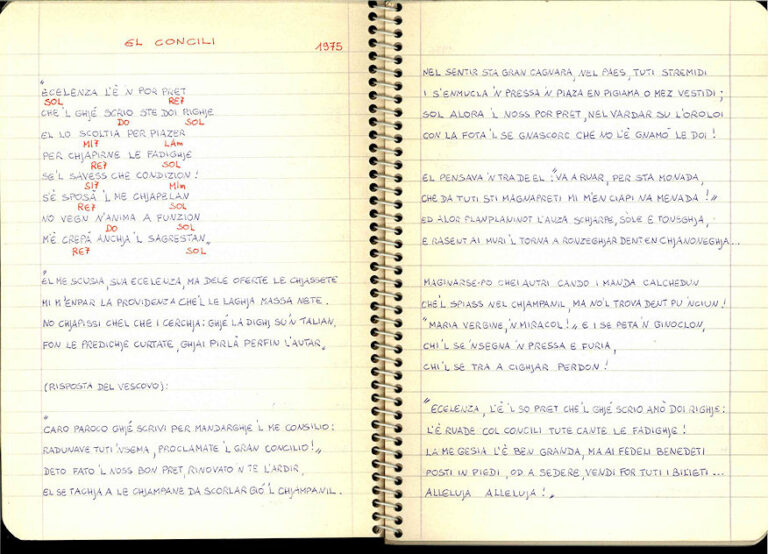 EL CONCILI
1975
"ECELENZA L'È 'N POR PRET
SOL RE7
CHE 'L GHJÉ SCRIO STE DOI RIGHJE
DO SOL
EL LO SCOLTIA PER PIAZER
MI7 LAm
PER CHJAPIRNE LE FADIGHJE
RE7 SOL
SE'L SAVESS CHE CONDIZION!
SI7 MIm
S'È SPOSÀ 'L ME CHJAPELAN
RE7 SOL
NO VEGN N'ANIMA A FUNZION
DO SOL
M'È CREPÀ ANCHJA 'L SAGRESTAN"
RE7 SOL
"EL ME SCUSIA, SUA ECELENZA, MA DELE OFERTE LE CHJASSETE
MI M'ENPAR LA PROVIDENZA CHE'L LE LAGHJA MASSA NETE.
NO CHJAPISSI CHEL CHE I CERCHJA: GHJÉ LA DIGHJ SU'N TALIAN,
FON LE PREDICHJE CURTATE, GHJAI PIRLÀ PERFIN L'AUTAR"
(RISPOSTA DEL VESCOVO):
"CARO PAROCO GHJÉ SCRIVI PER MANDARGHJE 'L ME CONSILIO:
RADUNAVE TUTI 'NSEMA, PROCLAMATE 'L GRAN CONCILIO!"
DETO FATO 'L NOSS BON PRET, RINOVATO N TE L'ARDIR,
EL SE TACHJA A LE CHJAMPANE DA SCORLAR GIÓ 'L CHJAMPANIL.
NEL SENTIR STA GRAN CAGNARA, NEL PAES, TUTI STREMIDI
I S'ENMUCLA 'N PRESSA 'N PIAZA EN PIGIAMA O MEZ VESTIDI;
SOL ALORA 'L NOSS POR PRET, NEL VARDAR SU L'OROLOI
CON LA FOTA 'L SE GNASCORC CHE NO L'È GNAMÓ LE DOI!
EL PENSAVA 'N TRA DE EL: "VA A RUAR, PER STA MONADA,
CHE DA TUTI STI MAGNAPRETI MI M'EN CIAPI NA MENADA!"
ED ALOR PLANPLANINOT L'AUZA SCHJARPE, SÒLE E TOVEGHJA,
E RASENT AI MURI 'L TORNA A RONZEGHJAR DENT EN CHJANONEGHJA...
MAGINARSE-PO CHEI AUTRI CANDO I MANDA CALCHEDUN
CHE'L SPIASS NEL CHJAMPANIL, MA NO'L TROVA DENT PU 'NCIUN!
"MARIA VERGINE, 'N MIRACOL!" E I SE PETA 'N GINOCLON,
CHI 'L SE 'NSEGNA 'N PRESSA E FURIA,
CHI 'L SE TRA A CIGHJAR PERDON!
"ECELENZA, L'È 'L SO PRET CHE 'L GHJÉ SCRIO AMÓ DOI RIGHJE:
L'È RUADE COL CONCILI TUTE CANTE LE FADIGHJE!
LA ME GESIA L'È BEN GRANDA, MA AI FEDELI BENEDETI
POSTI IN PIEDI, OD A SEDERE, VENDI FOR TUTI I BILIETI...
ALLELUJA ALLELUJA!"